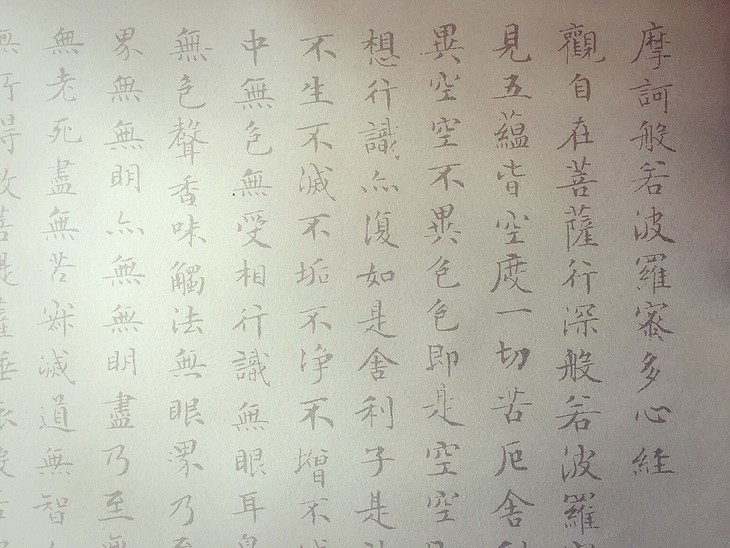 摩訶般若波羅蜜多心経
觀自在菩薩行深般若波羅
見五蘊皆空度一切苦厄舍利
異空空不異色色即是空空即
想行識亦復如是舍利子是
不生不滅不垢不浄不增不減
中無色無受相行識無眼耳鼻
無色聲香味觸法無眼界乃至
界無無明亦無無明盡乃至無
無老死盡無苦寂滅道無智
無所得故菩提薩埵依般若